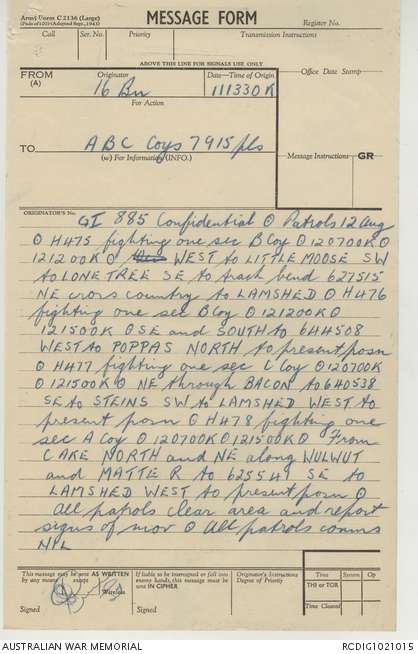 Army Form C2136 (Large)
(Pads of 100) (Adopted Sept., 1943)
MESSAGE FORM
Register No.
Call
Ser. No.
Priority
Transmission Instructions
ABOVE THIS LINE FOR SIGNALS USE ONLY
FROM
(A)
Originator
16 Bn
Date—Time of Origin
111330K
Office Date Stamp
For Action
TO
A B C Coys 7 9 15 pls
(w) For Information (INFO.)
Message Instructions
GR
ORIGINATOR'S No.
GI 885 Confidential O Patrols 12 Aug
O H475 fighting one sec B Coy O 120700K O
121200K O WEST to LITTLE MOOSE SW
to LONE TREE SE to track bend 627515
NE cross country to LAMSHED O H476
fighting one sec B Coy O 121200K O
121500K O SE and SOUTH to 644508
WEST to POPPAS NORTH to present posn
O H477 fighting one sec C Coy O 120700K
O 121500K O NE through BACON to 640538
SE to STEINS SW to LAMSHED WEST to
present posn O H478 fighting one
sec A Coy O 120700K O 121500K O From
CAKE NORTH and NE along WULWUT
and MATTE R to 625541 SE to
LAMSHED WEST to present posn O
All patrols clear area and report
signs of mov O All patrols comms
NPL
This message may be sent AS WRITTEN
by any means except Wireless
Signed
If liable to be intercepted or fall into
enemy hands, this message must be
sent IN CIPHER
Signed
Originator's Instructions
Degree of Priority
Time
System
Op
THI or TOR
Time Cleared
AUSTRALIAN WAR MEMORIAL
RCDIG1021015